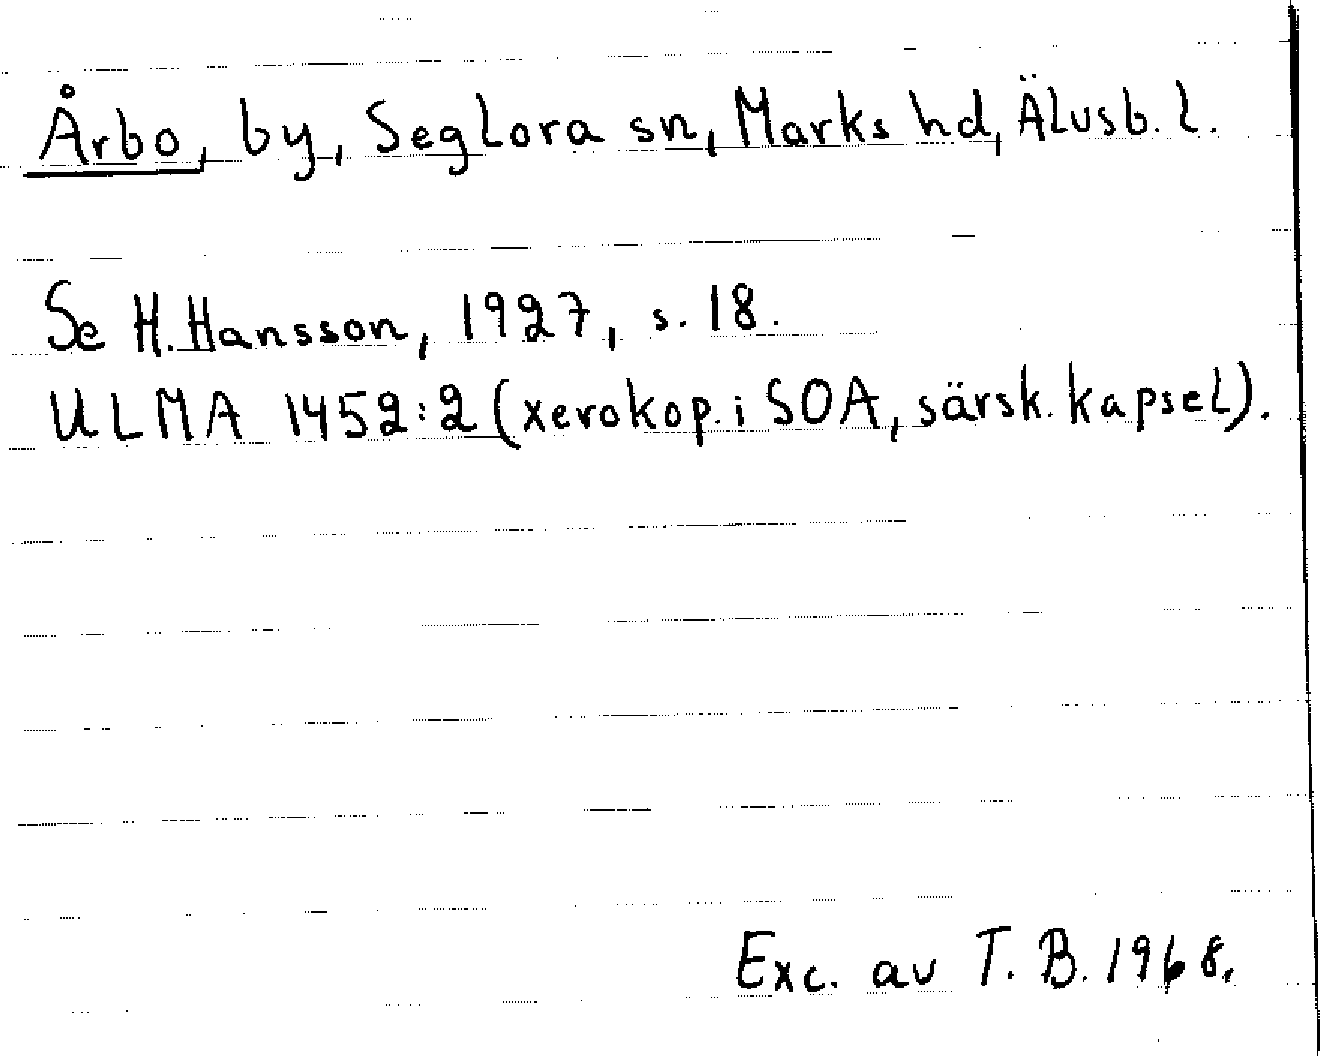 Årbo, by, Seglora sn, Marks hd, Älvsb. l.
Se H. Hansson, 1927, s. 18.
ULMA 1452:2 (xerokop. i SOA, särsk. kapsel).
Exc. av T. B. 1968.